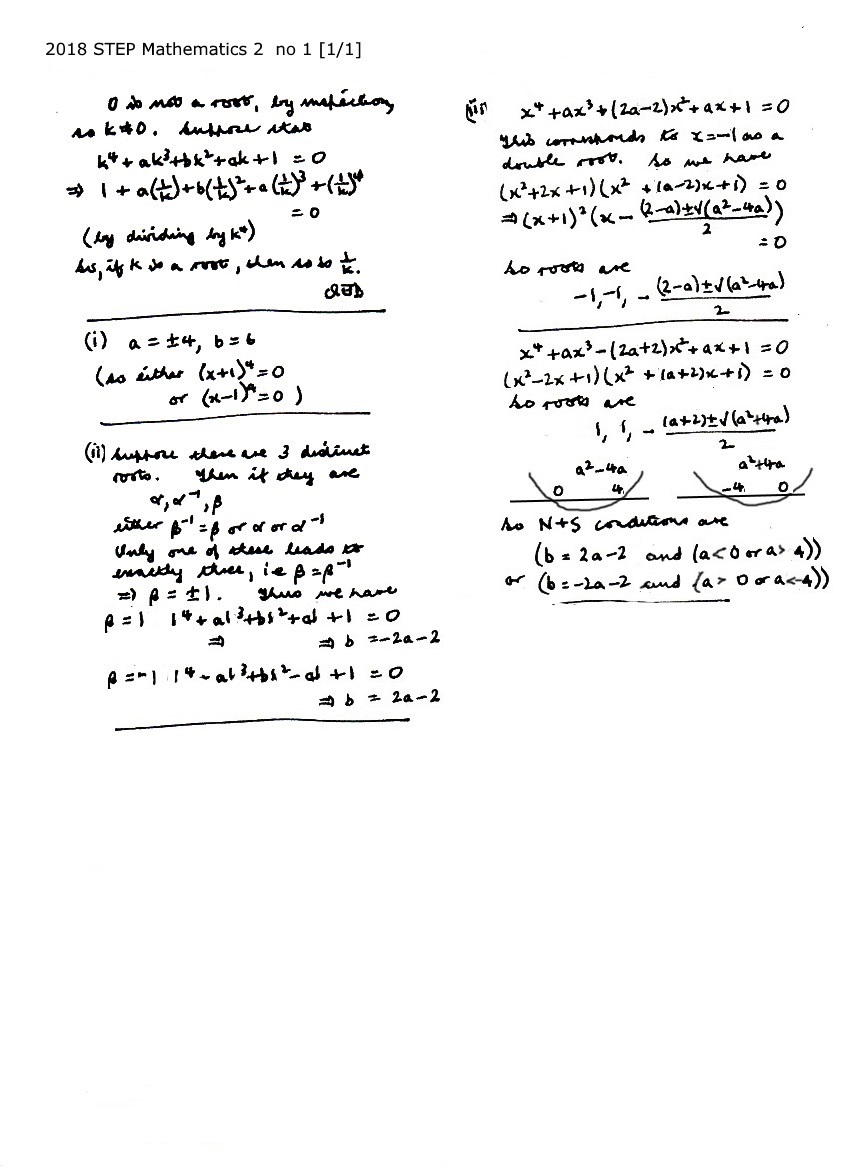 2018 STEP Mathematics 2 no 1 [1/1]
0 is not a root, by inspection,
so k≠0. Suppose that
k⁴+ak³+bk²+ak+1 = 0
⇒ 1+a(1/k)+b(1/k)²+a(1/k)³+(1/k)⁴
= 0
(by dividing by k⁴)
So, if k is a root, then so is 1/k.
QED
(i) a = ±4, b = 6
(so either (x+1)⁴=0
or (x-1)⁴=0 )
(ii) Suppose there are 3 distinct
roots. Then if they are
α, α⁻¹, β
either β⁻¹=β or α or α⁻¹
Only one of these leads to
exactly three, i.e β=β⁻¹
⇒ β = ±1. Thus we have
β=1 1⁴+a1³+b1²+a1+1 = 0
⇒ ⇒ b = -2a-2
β=-1 1⁴-a1³+b1²-a1+1 = 0
⇒ b = 2a-2
(iii) x⁴+ax³+(2a-2)x²+ax+1 = 0
This corresponds to x=-1 as a
double root. So we have
(x²+2x+1)(x²+(a-2)x+1) = 0
⇒ (x+1)²(x- (2-a)±√(a²-4a))
2
= 0
So roots are
-1, -1, - (2-a)±√(a²-4a)
2
x⁴+ax³-(2a+2)x²+ax+1 = 0
(x²-2x+1)(x²+(a+2)x+1) = 0
So roots are
1, 1, - (a+2)±√(a²+4a)
2
a²-4a a²+4a
0 4 -4 0
So N+S conditions are
(b = 2a-2 and (a<0 or a>4))
or (b=-2a-2 and (a>0 or a<-4))